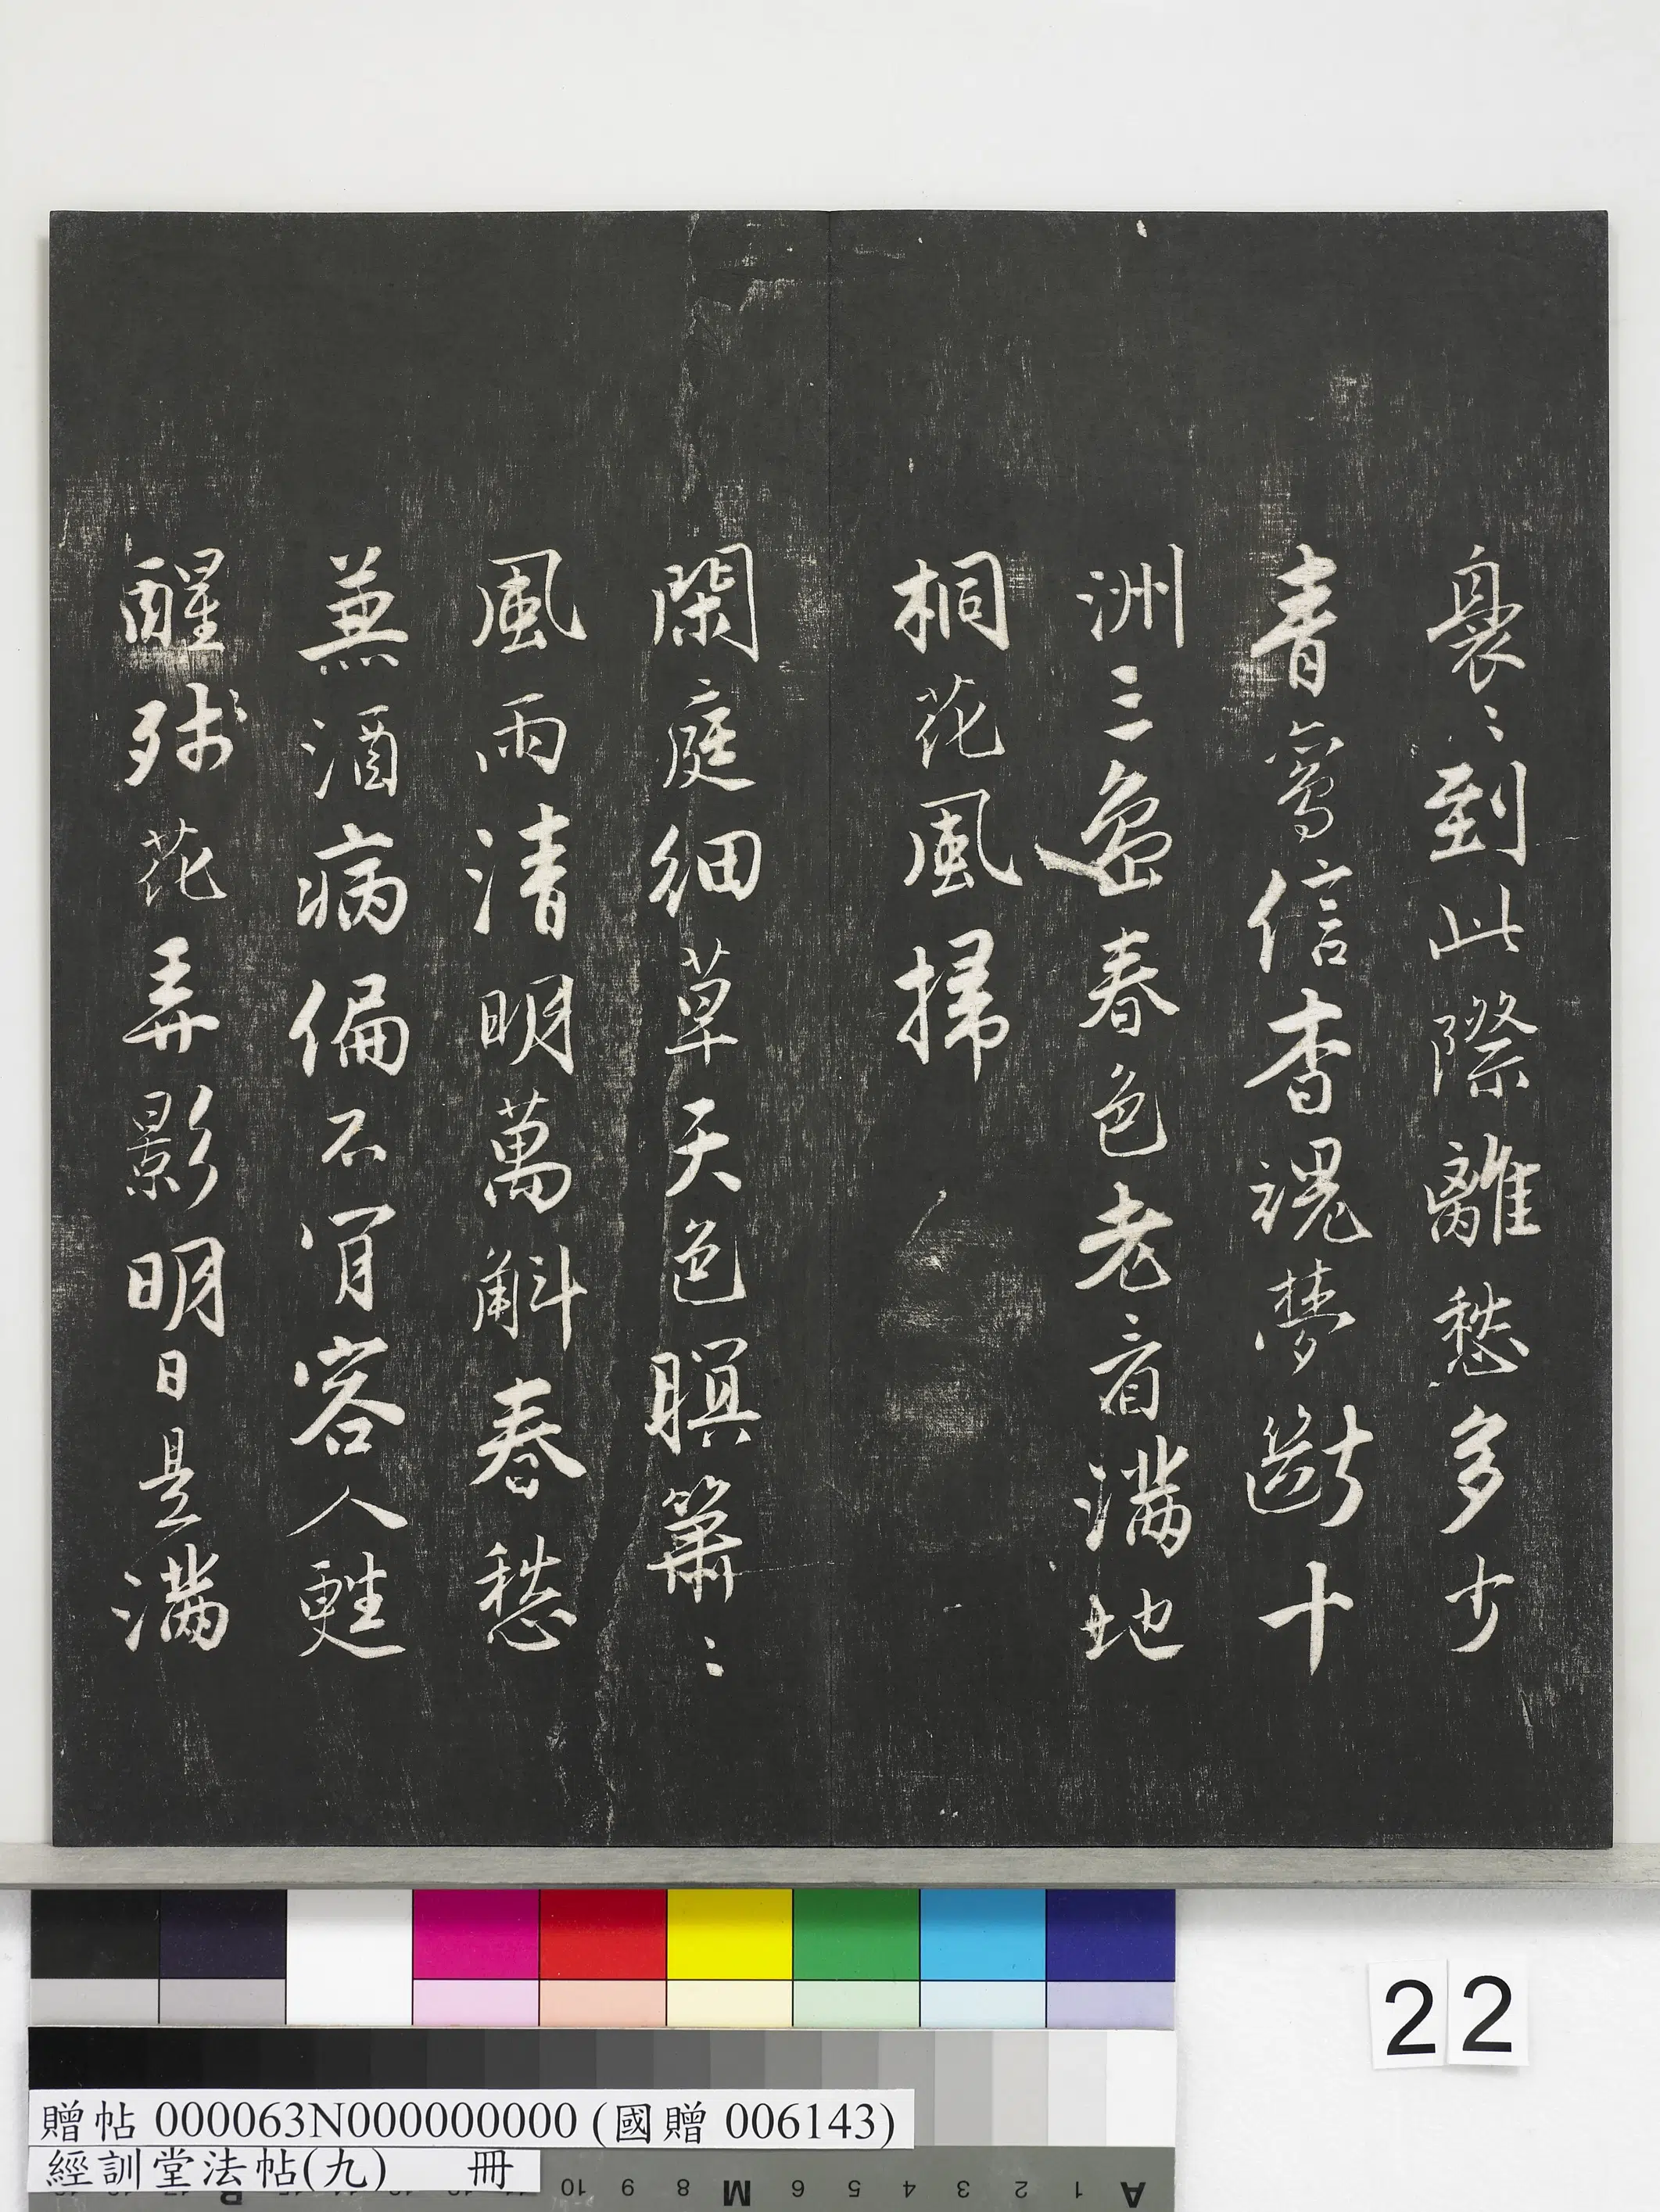 裊〻到此際離愁多少
青鸞信杳魂夢斷十
洲三島春色老看滿地
桐花風掃
閑庭細草天色暝簫〻
風雨清明萬斛春愁
兼酒病偏不肯容人甦
醒殘花弄影明日是滿
22
贈帖 000063N000000000 (國贈 006143)
經訓堂法帖(九) 冊
10 9 8 M 6 5 4 3 2 1 A